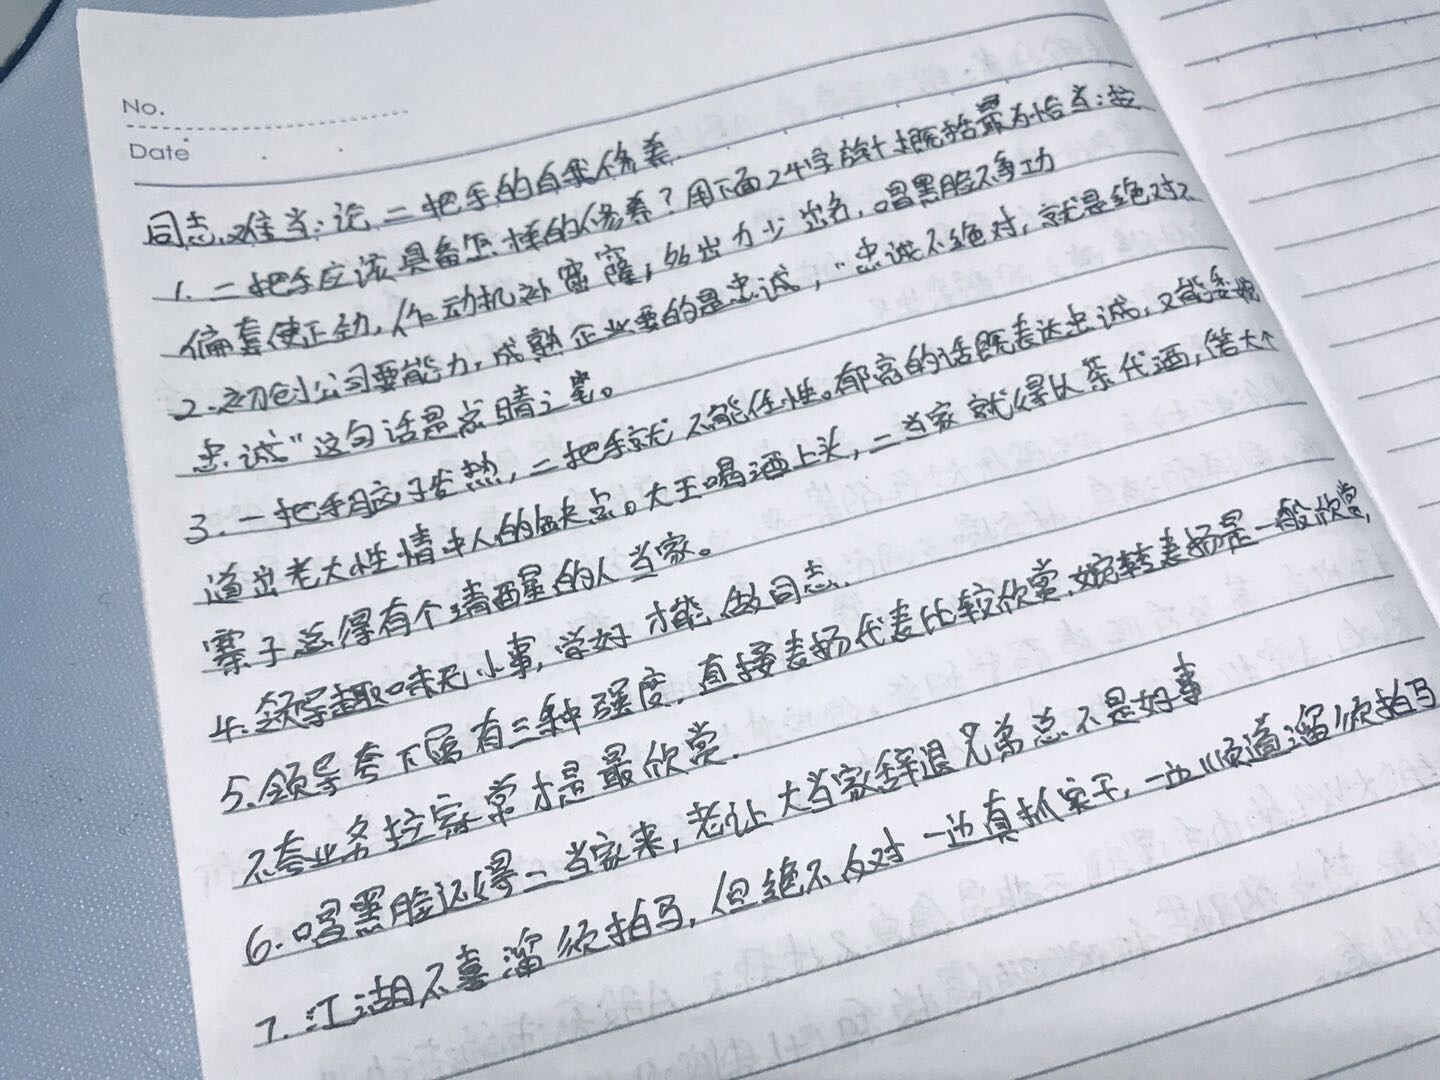 No.
Date
同志难当:论二把手的自我修养
1.二把手应该具备怎样的修养?用下面24字能概括最为恰当:按
偏套使正劲,作动机补窟窿,多出力少出名,唱黑脸不争功
2.初创公司要能力,成熟企业要的是忠诚,"忠诚不绝对,就是绝对不
忠诚"这句话是点睛之笔。
3.一把手脑子发热,二把手就不能任性。郁亮的话既表达忠诚,又能委婉
道出老大性情中人的缺点。大王喝酒上头,二当家就得以茶代酒,偌大个
寨子总得有个清醒的人当家。
4.领导趣味无小事,学好才能做同志.
5.领导夸下属有三种强度,直接表扬代表比较欣赏,婉转表扬是一般欣赏,
不夸业务拉家常才是最欣赏.
6.唱黑脸还得二当家来,老让大当家辞退兄弟总不是好事
7.江湖不喜溜须拍马,但绝不反对一边真抓实干,一边顺道溜须拍马